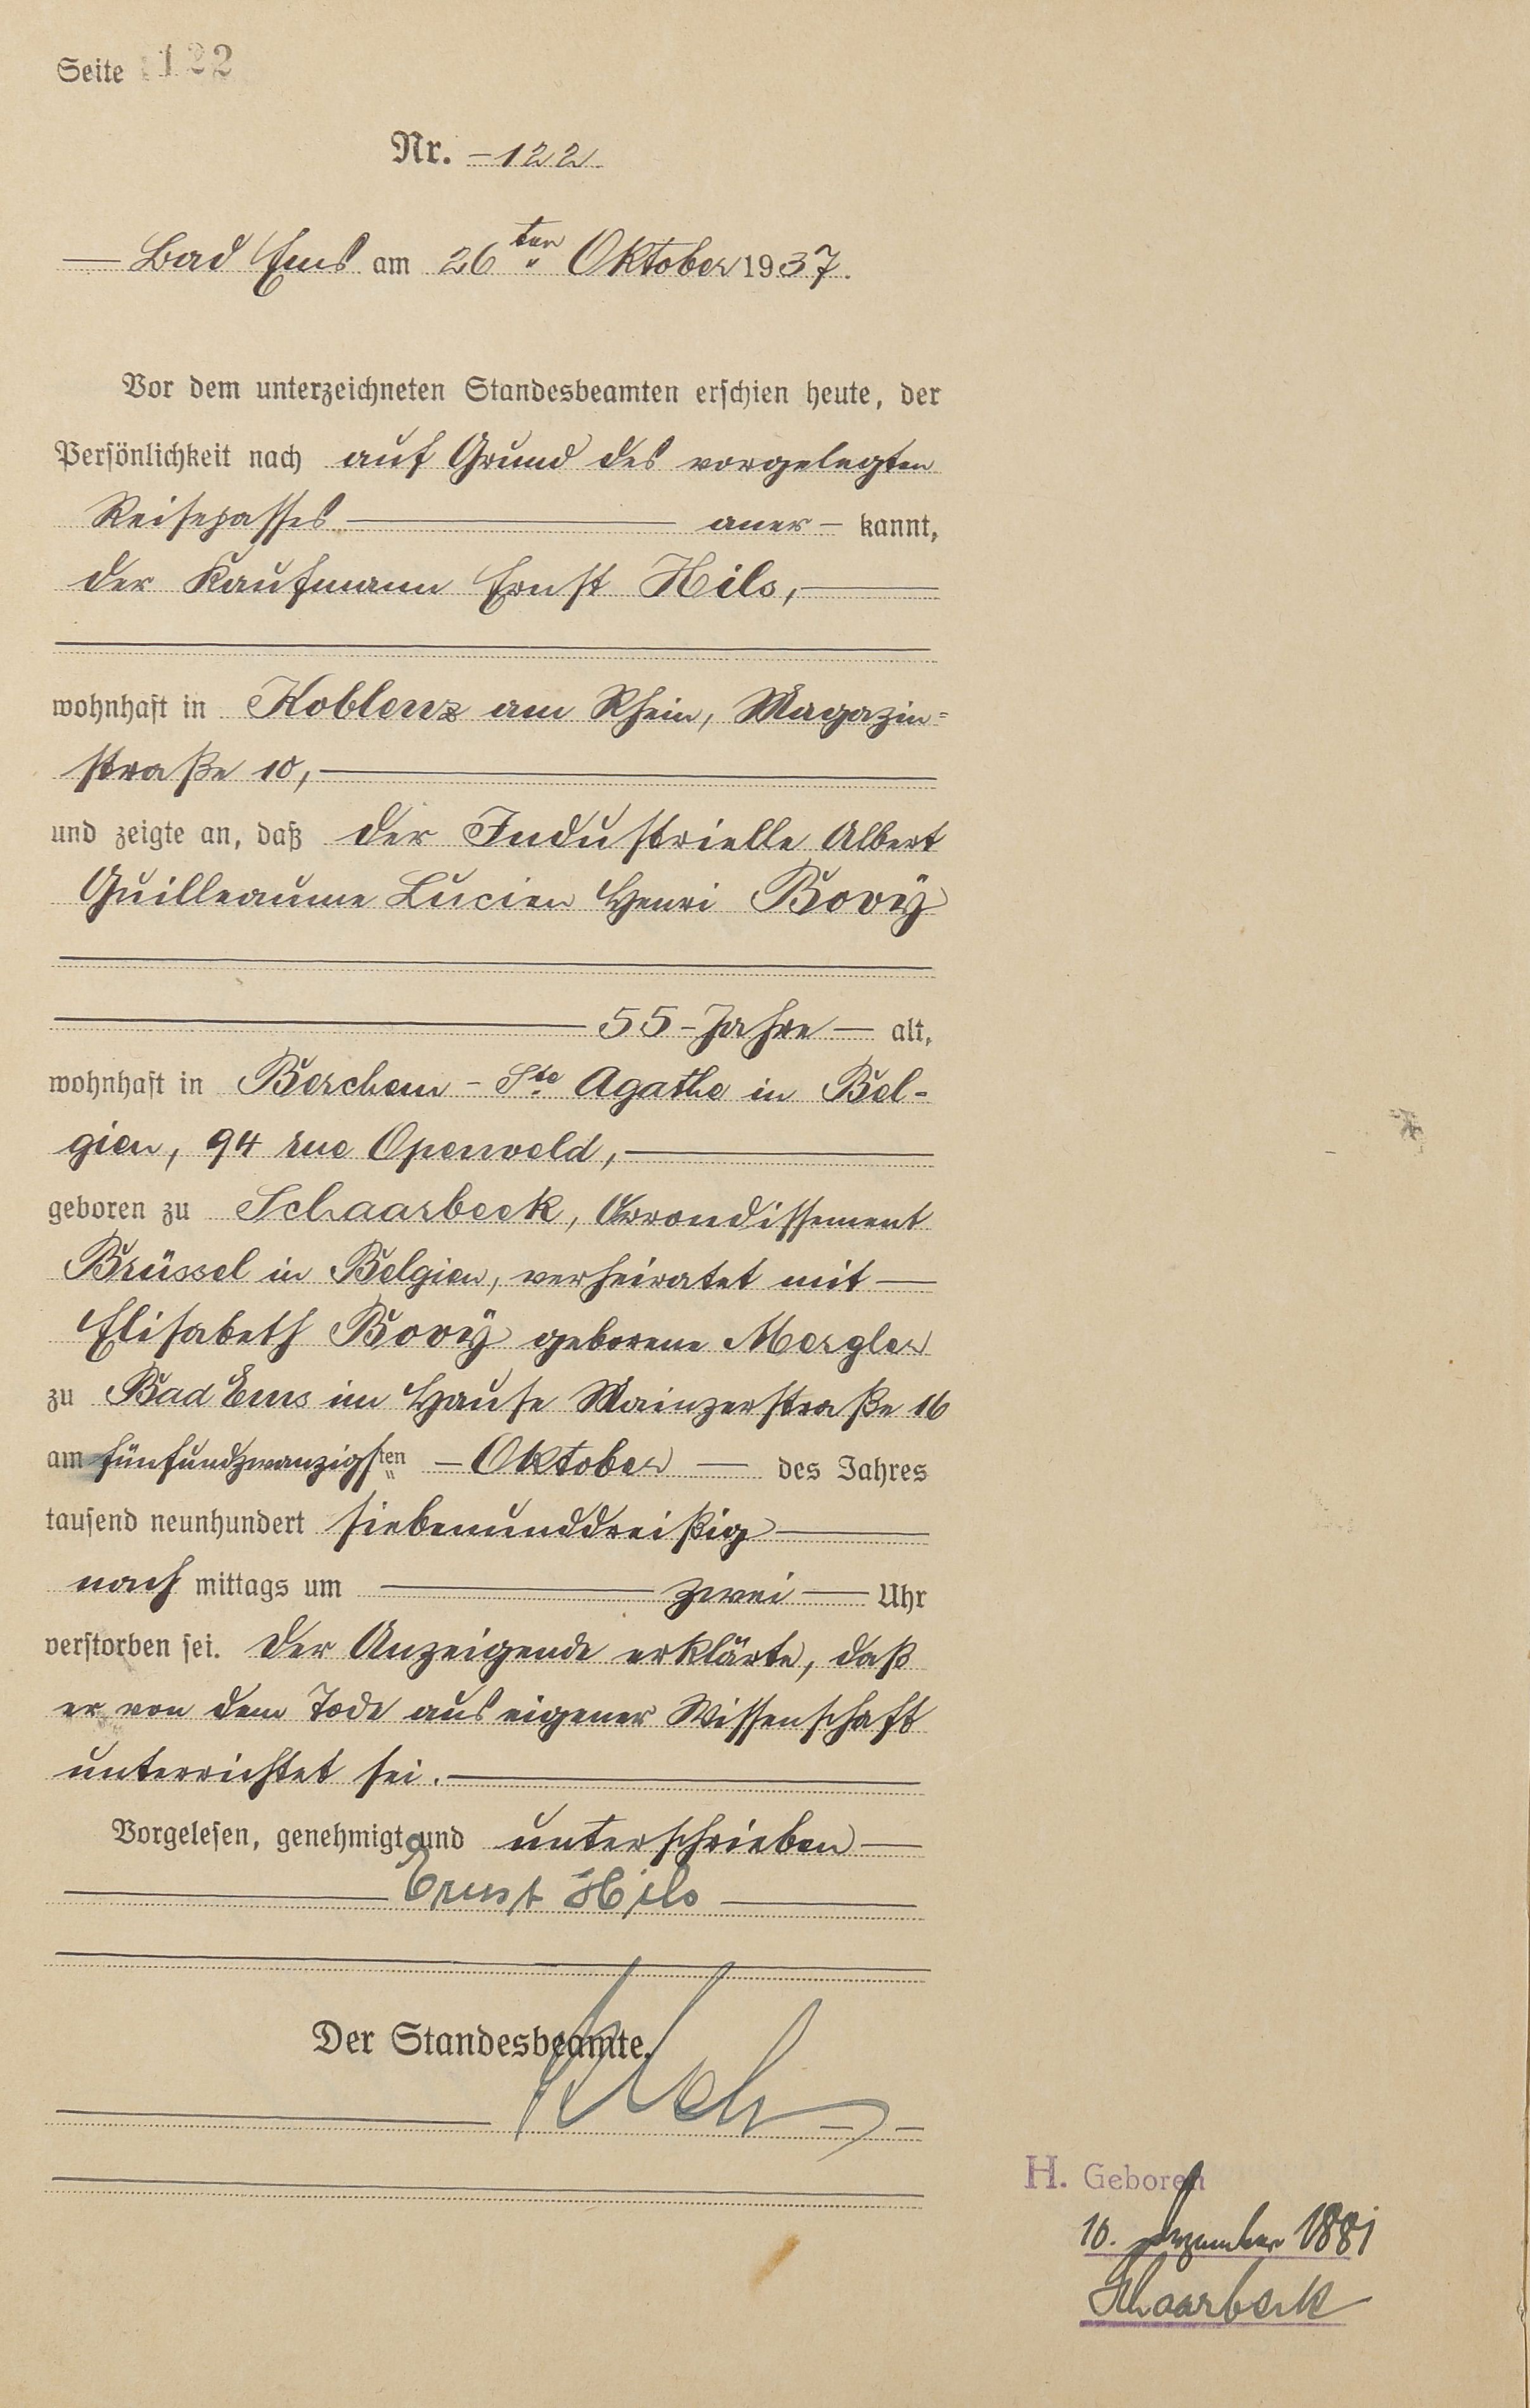 Seite 122
Nr. – 122
— Bad Ems am 26ten Oktober 1937.
Vor dem unterzeichneten Standesbeamten erschien heute, der
Persönlichkeit nach auf Grund des vorgelegten
Reisepasses — aner – kannt,
der Kaufmann Ernst Hils, —
wohnhaft in Koblenz am Rhein, Magazin=
straße 10, —
und zeigte an, daß der Industrielle Albert
Guilleaume Lucien Henri Bovÿ
— 55 - Jahre — alt,
wohnhaft in Berchem - Ste Agathe in Bel-
gien, 94 rue Openveld, —
geboren zu Schaarbeek, Arrondissement
Brüssel in Belgien, verheiratet mit —
Elisabeth Bovÿ geborene Mergler
zu Bad Ems im Hause Mainzerstraße 16
am fünfundzwanzigsten – Oktober — des Jahres
tausend neunhundert siebenunddreißig —
nach mittags um — zwei — Uhr
verstorben sei. Der Anzeigende erklärte, daß
er von dem Tode aus eigener Wissenschaft
unterrichtet sei. —
Vorgelesen, genehmigt und unterschrieben —
— Ernst Hils —
Der Standesbeamte.
H. Geboren
16. Dezember 1881
Schaarbeek